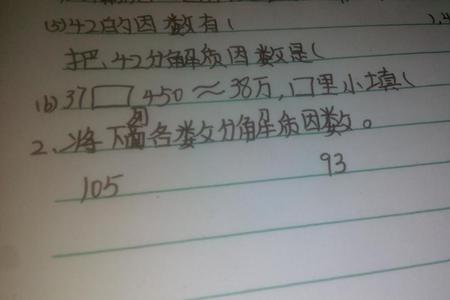 (5)42的因数有(        ),
把、42分解质因数是(
(6)37□450≈38万,口里小填(
2、将下面各数分解质因数。
105    93